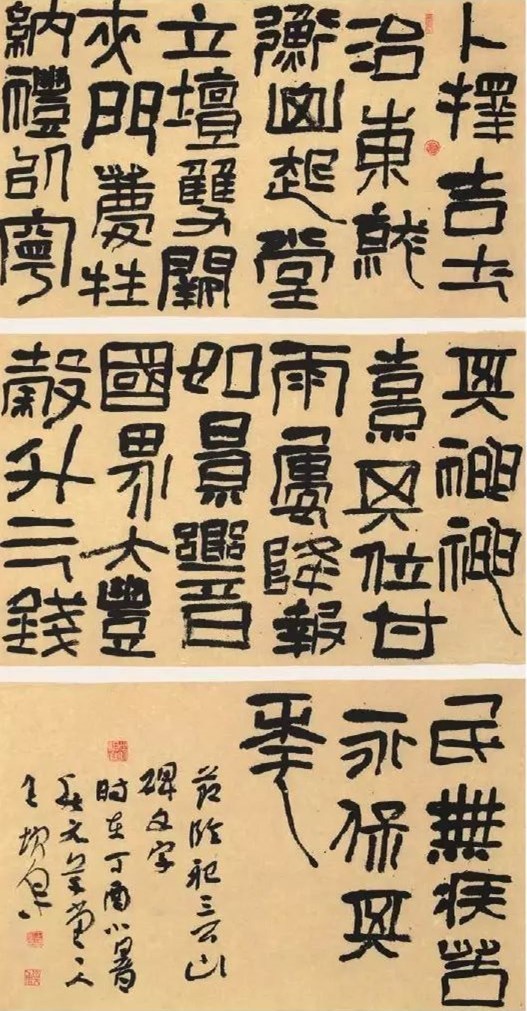 卜擇吉土
治東就
衡山起堂
立壇雙闕
夾門薦牲
納禮以寧
其神神
熹其位甘
雨屢降報
如景響
國界大豐
穀斗三錢
民無疾苦
永保其
年
節臨祀三公山
碑文字
时在丁酉小暑